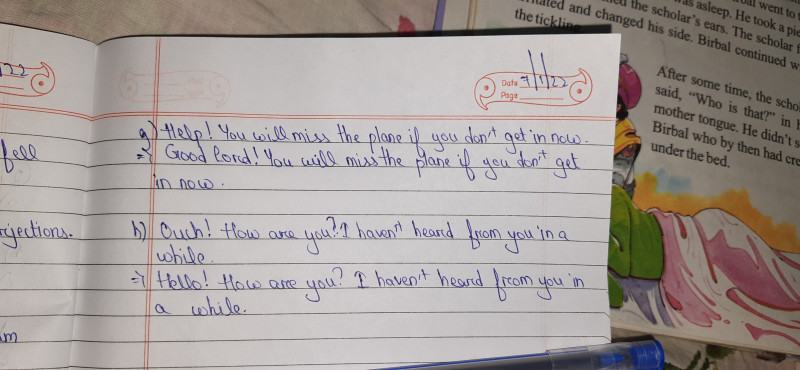 22
fell
rjections.
Date 7/1/22
Page
g) Help! You will miss the plane if you don't get in now.
=> Good lord! You will miss the plane if you don't get
in now.
h) Ouch! How are you? I haven't heard from you in a
while.
=> Hello! How are you? I haven't heard from you in
a while.
was asleep. He took a
the scholar's ears. The scholar
and changed his side. Birbal continued
the tickling
After some time, the
said, "Who is that?" in
mother tongue. He didn't
Birbal who by then had
under the bed.